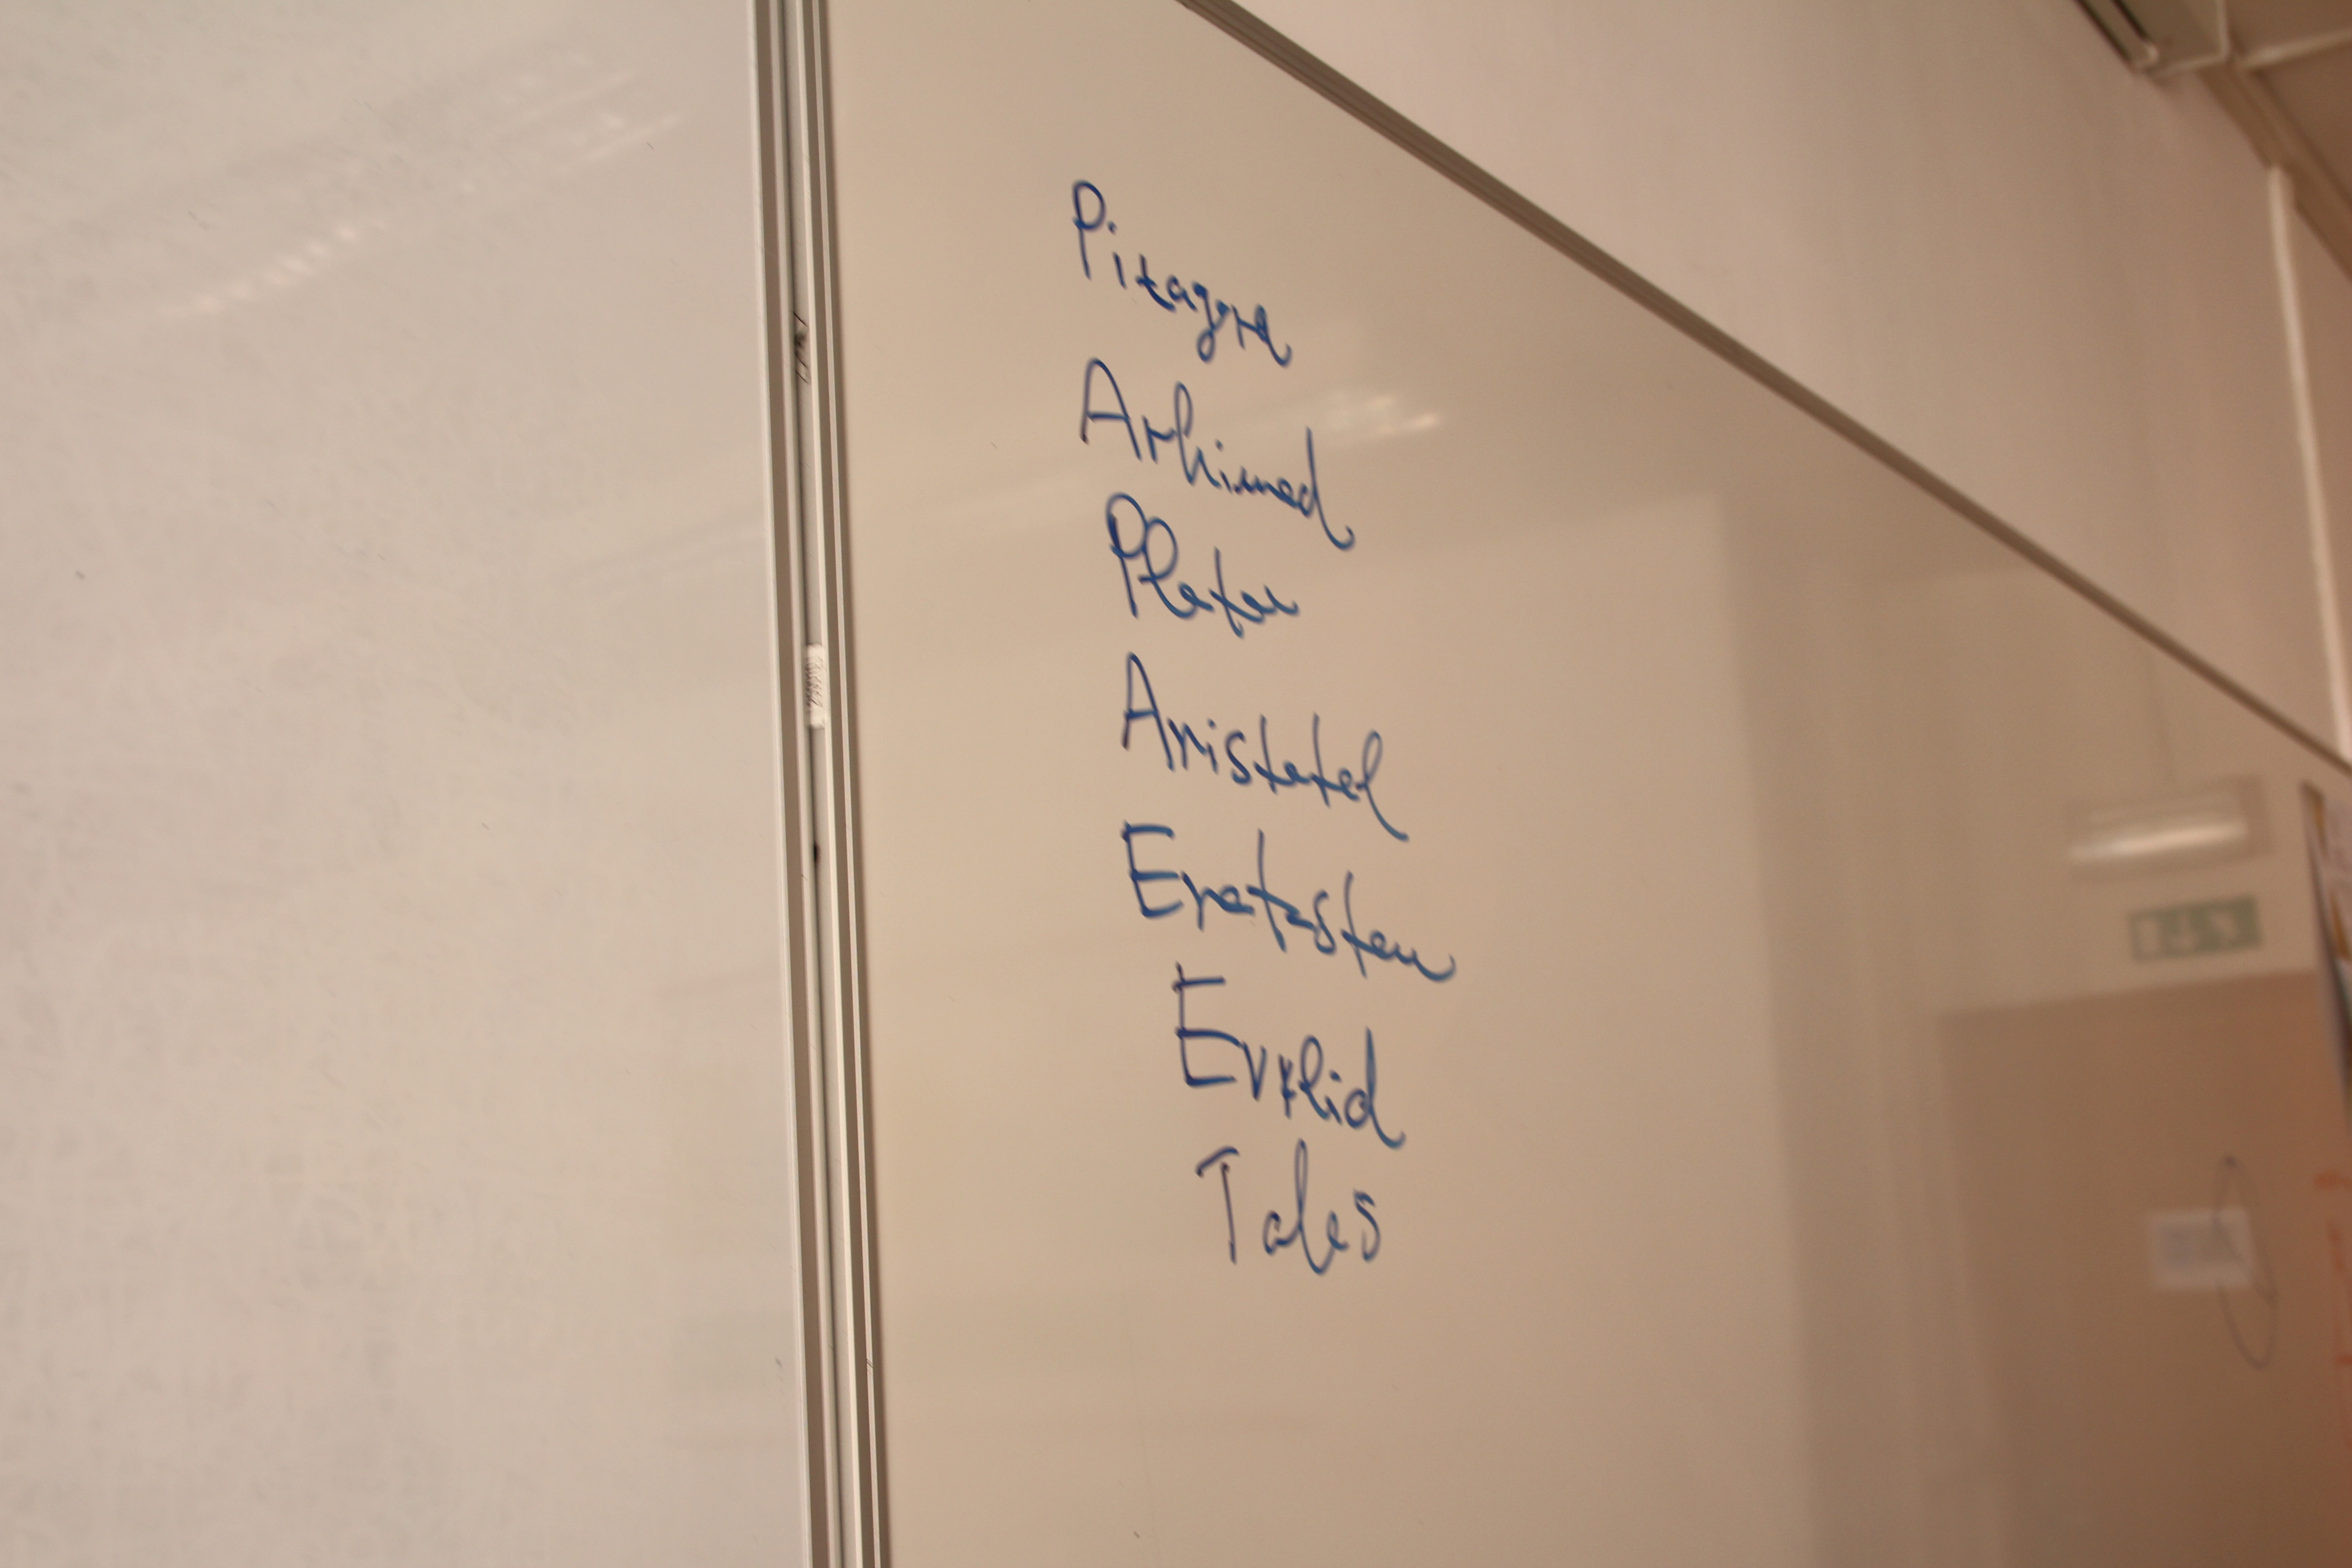 Pitagora
Arhimed
Platon
Aristotel
Eratosten
Evklid
Tales